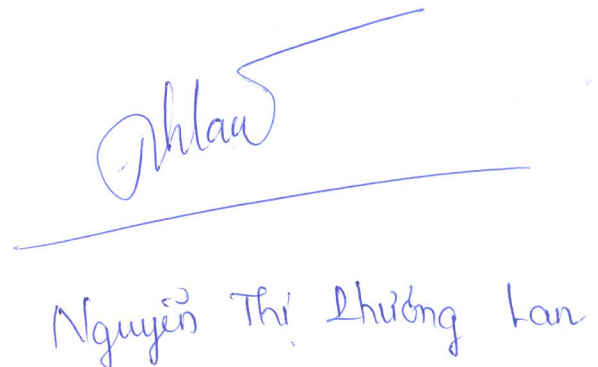 Phlan
Nguyễn Thị Phương Lan